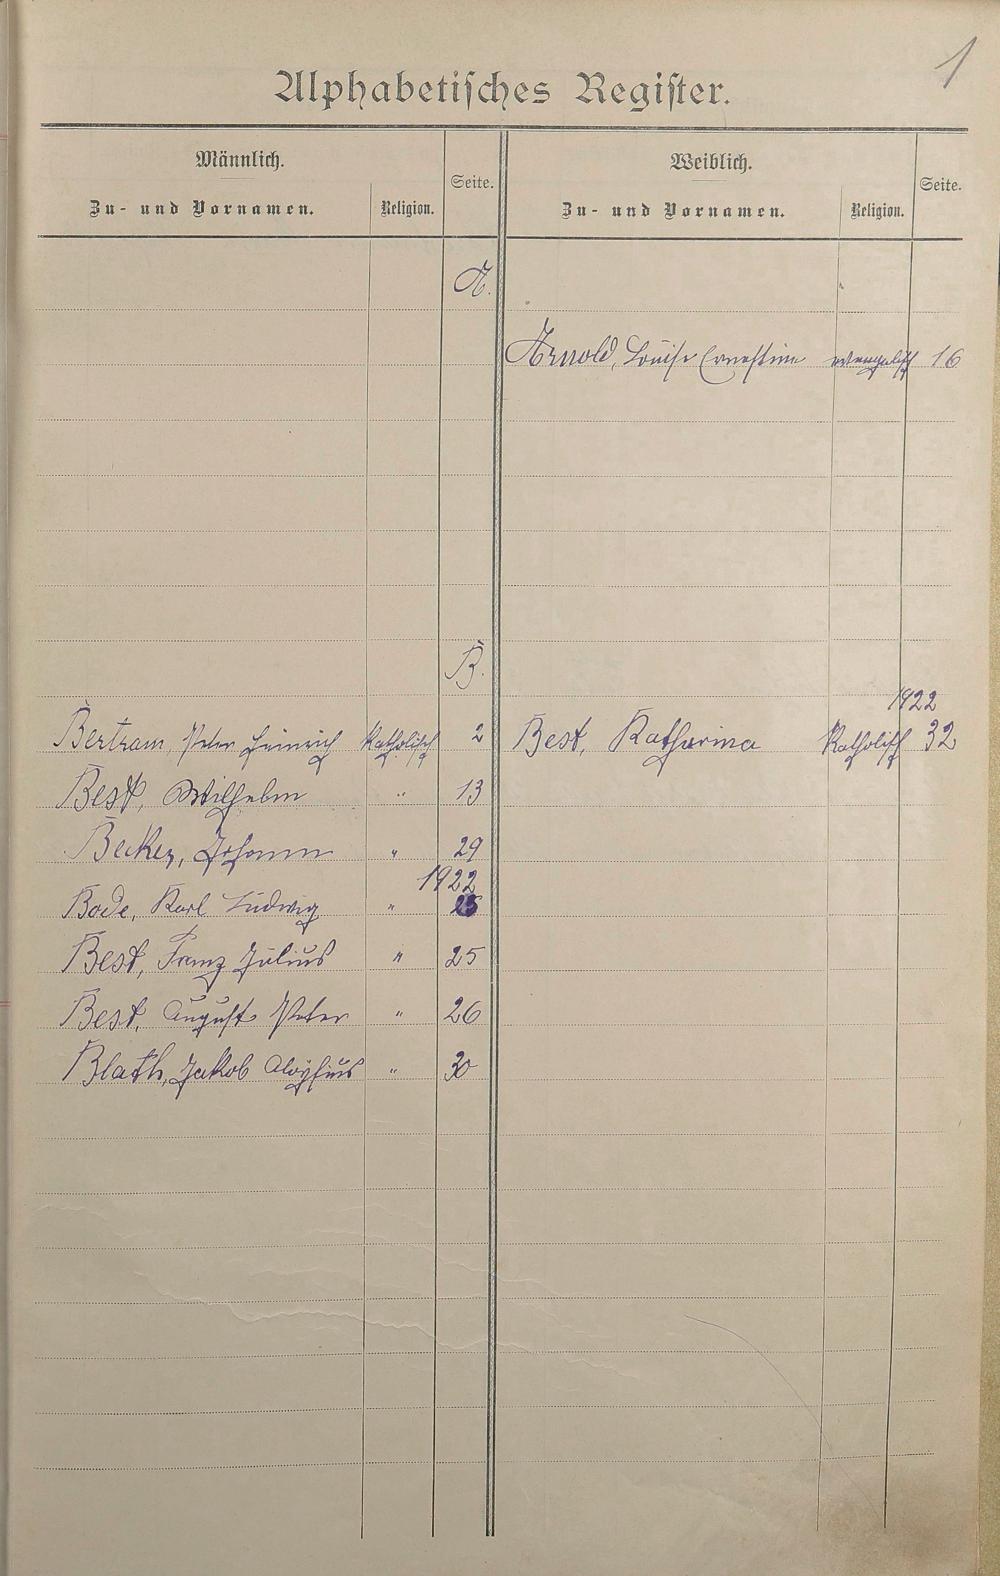 1
Alphabetisches Register.
Männlich. Seite. Weiblich. Seite.
Zu- und Vornamen. Religion. Zu- und Vornamen. Religion.
A.
Arnold, Louise Ernestine evangelisch 16
B.
1922
Bertram, Peter Heinrich Katholisch 2 Best, Katharina Katholisch 32
Best, Wilhelm " 13
Becker, Johann " 29
1922
Bode, Karl Ludwig "
Best, Franz Julius " 25
Best, August Peter " 26
Blath, Jakob Aloysius " 30